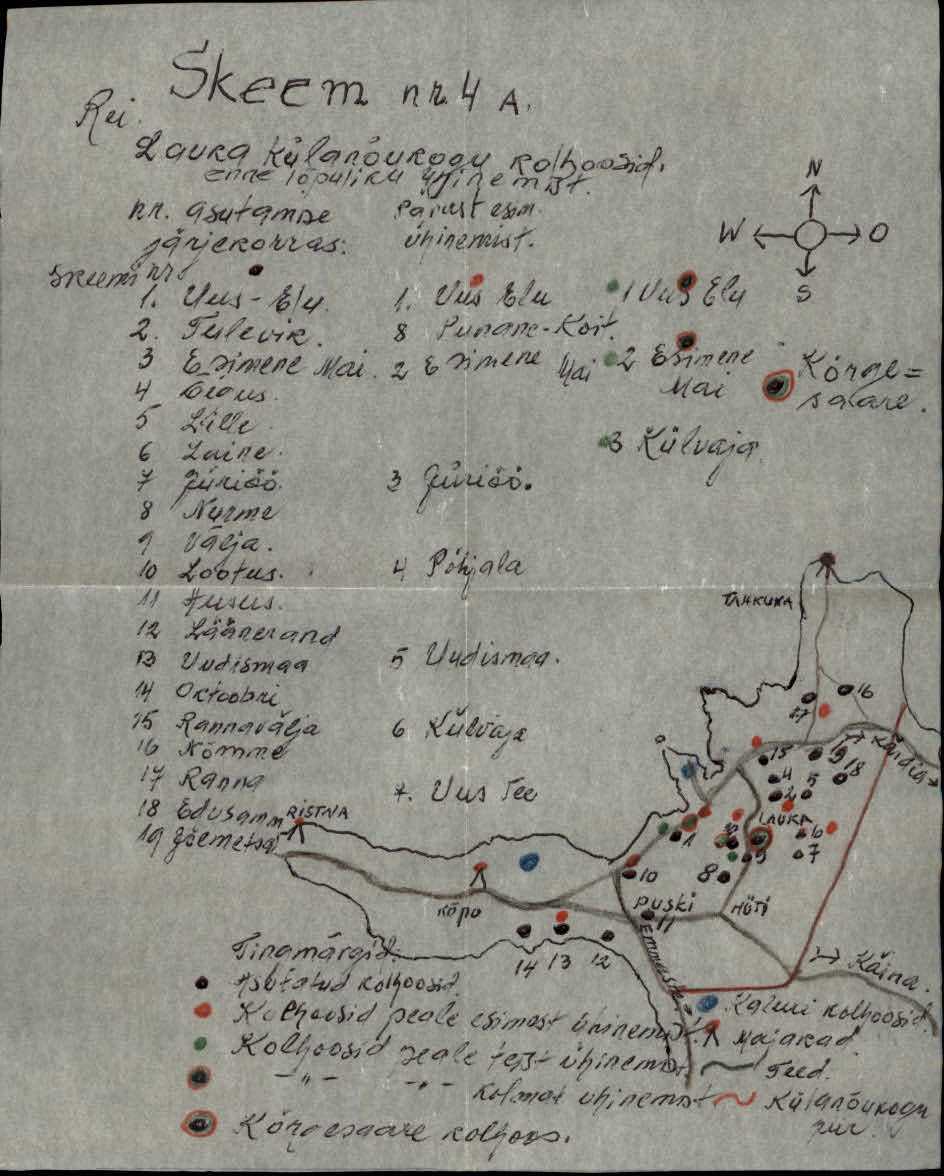 Skeem nr. 4 A.
Rei.
Lauka Külanõukogu kolhoosid.
enne lõpuliku ühinemist.
nr. asutamise
järjekorras:
Pärast esim.
ühinemist.
N
W O
S
Skeemi nr.
1. Uus-Elu.
2. Tulevik.
3 Esimene Mai.
4 Õigus.
5 Lille.
6 Laine.
7 Jüriöö.
8 Nurme
9 Välja.
10 Lootus.
11 Ausus.
12 Läänerand
13 Uudismaa
14 Oktoobri
15 Rannavälja
16 Nõmme
17 Ranna
18 Edusamm
19 Jõemetsa
1. Uus Elu
8 Punane-Koit.
2 Esimene Mai
3 Jüriöö.
4 Põhjala
5 Uudismaa.
6 Külvaja
7. Uus Tee
1 Uus Elu
2 Esimene
Mai
3 Külvaja
Kõrge=
saare.
TAHKUNA
16
17
Kärdla
15 19
4 5 18
2
LAUKA
1 3 6
9 7
10 8
RISTNA
KÕPU
PUSKI HÜTI
11
EMMASTE
14 13 12
Käina.
Tingmärgid.
Asutatud kolhoosid.
Kolhoosid peale esimest ühinemist.
Kolhoosid peale teist ühinemist
-"- -"-
kolmat ühinemist
Kõrgesaare kolhoos.
Kaluri kolhoosid.
Majakad.
Teed.
Külanõukogu
piir.